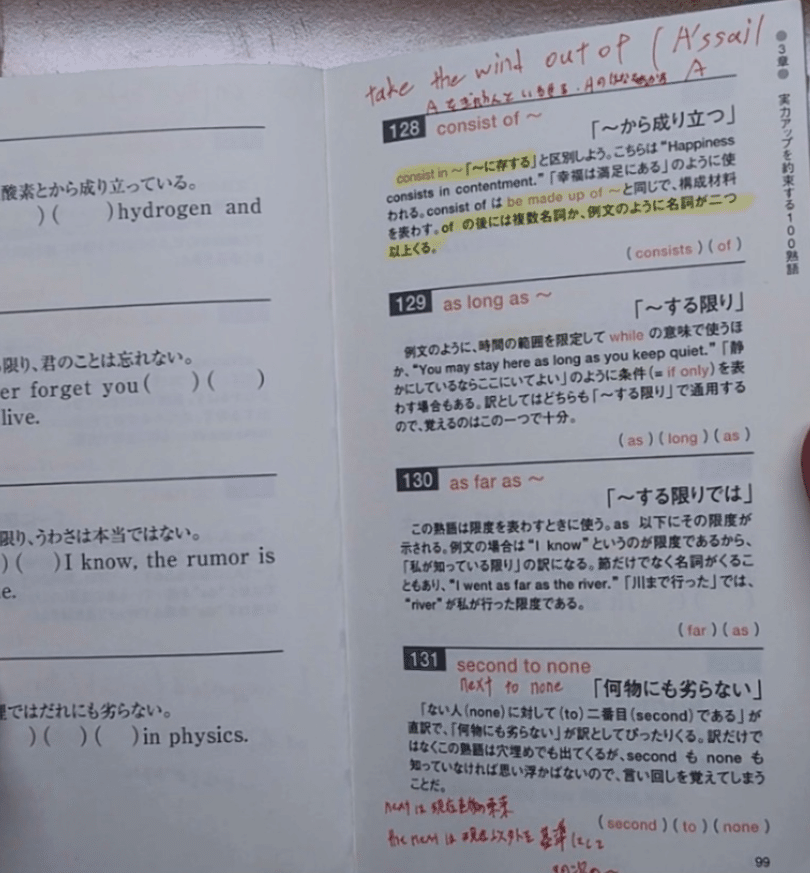 酸素とから成り立っている。
)( )hydrogen and
限り、君のことは忘れない。
er forget you( )( )
live.
限り、うわさは本当ではない。
)( )I know, the rumor is
e.
ではだれにも劣らない。
)( )( )in physics.
take the wind out of ( A's sail
A
●3章● 実力アップを約束する100熟語
128 consist of ～
「～から成り立つ」
consist in ～「～に存する」と区別しよう。こちらは“Happiness
consists in contentment.”「幸福は満足にある」のように使
われる。consist of は be made up of ～と同じで、構成材料
を表わす。of の後には複数名詞か、例文のように名詞が二つ
以上くる。
(consists)(of)
129 as long as ～
「～する限り」
例文のように、時間の範囲を限定して while の意味で使うほ
か、“You may stay here as long as you keep quiet.”「静
かにしているならここにいてよい」のように条件(= if only)を表
わす場合もある。訳としてはどちらも「～する限り」で通用する
ので、覚えるのはこの一つで十分。
(as)(long)(as)
130 as far as ～
「～する限りでは」
この熟語は限度を表わすときに使う。as 以下にその限度が
示される。例文の場合は“I know”というのが限度であるから、
「私が知っている限り」の訳になる。節だけでなく名詞がくるこ
ともあり、“I went as far as the river.”「川まで行った」では、
“river”が私が行った限度である。
(far)(as)
131 second to none
next to none
「何物にも劣らない」
「ない人(none)に対して(to)二番目(second)である」が
直訳で、「何物にも劣らない」が訳としてぴったりくる。訳だけで
はなくこの熟語は穴埋めでも出てくるが、second も none も
知っていなければ思い浮かばないので、言い回しを覚えてしまう
ことだ。
(second)(to)(none)
next は現在
the next は現在以外を基準にして
99